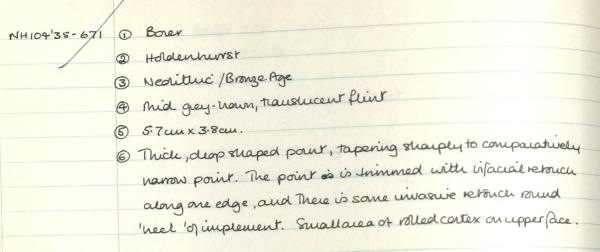 NH104'35-671 ① Borer
② Holdenhurst
③ Neolithic/Bronze Age
④ Mid grey-brown, translucent flint
⑤ 5.7cm x 3.8cm.
⑥ Thick, drop shaped point, tapering sharply to comparatively
narrow point. The point is trimmed with bifacial retouch
along one edge, and there is some invasive retouch round
'heel' of implement. Small area of rolled cortex on upper face.